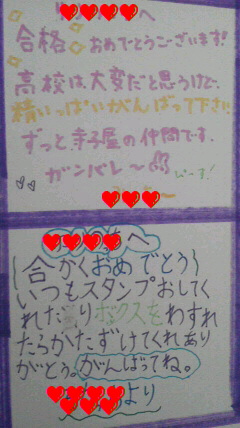 へ
合格おめでとうございます!
高校は大変だと思うけど、
精いっぱいがんばって下さい。
ずっと寺子屋の仲間です。
ガンバレ〜
へ
合かくおめでとう
いつもスタンプおしてく
れたりボックスをわすれ
たらかたずけてくれあり
がとう。がんばってね。
より